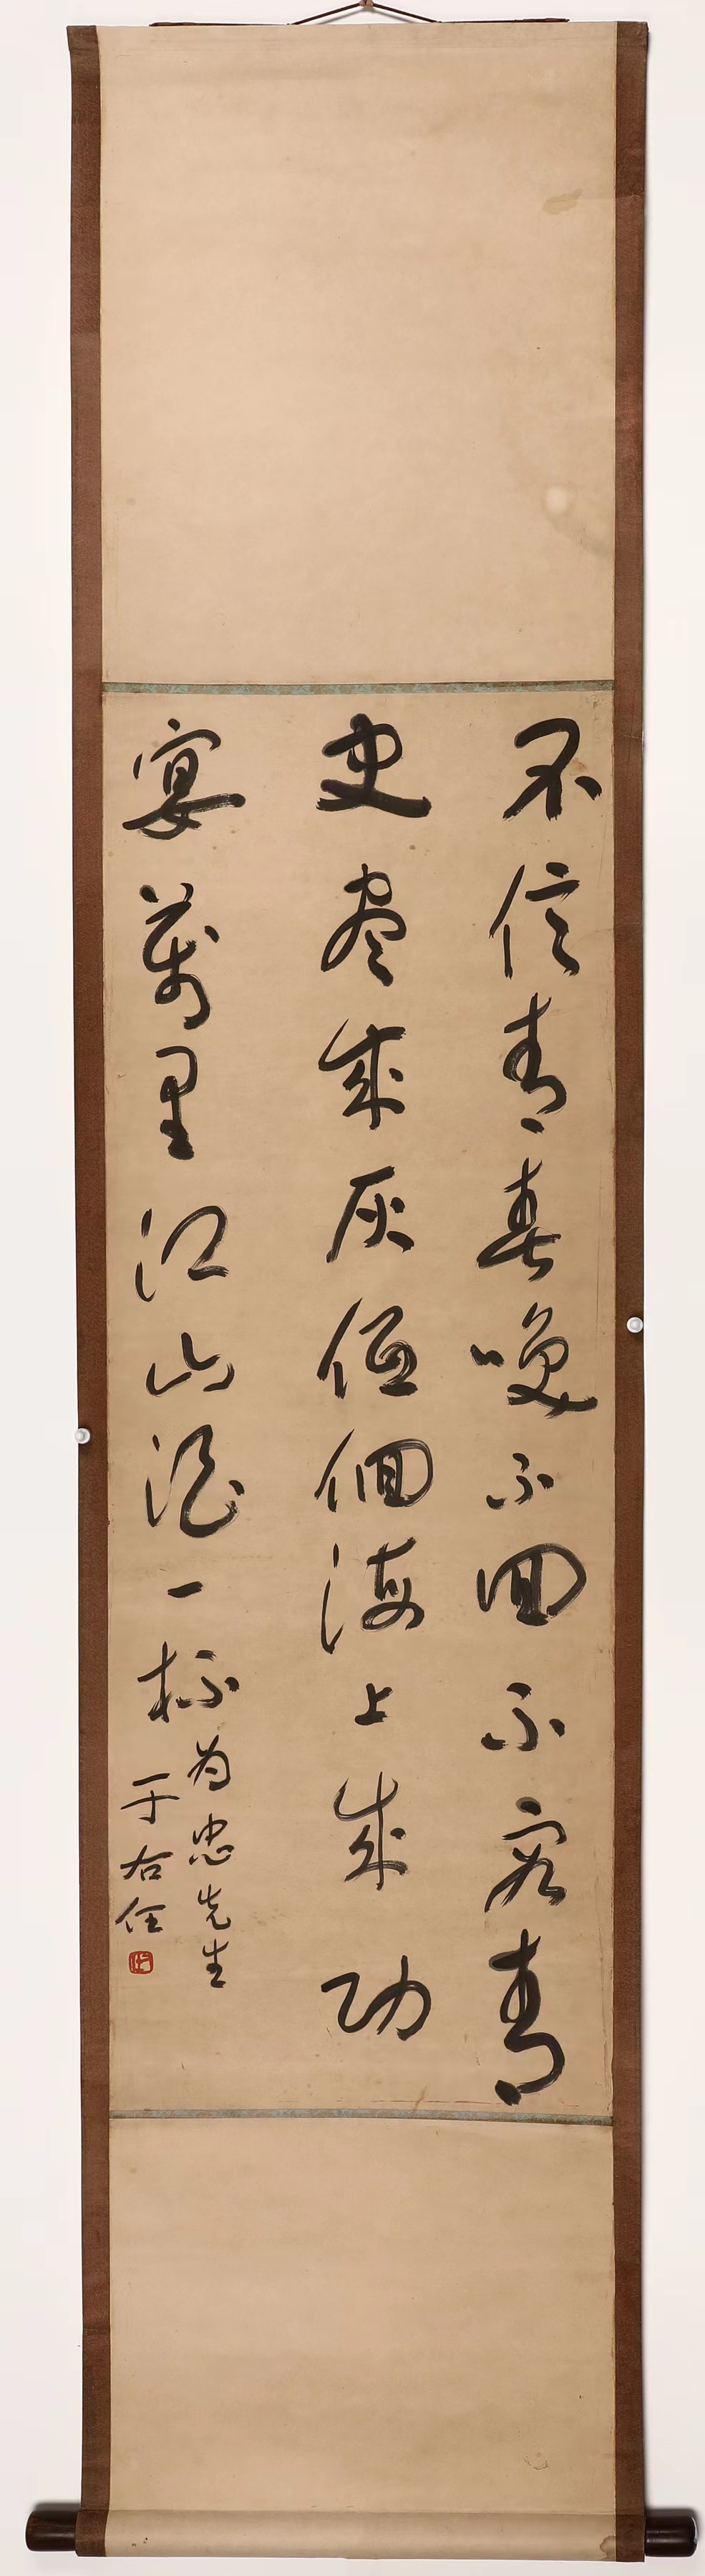 不信青春喚不回不容青
史盡成灰低佪海上成功
宴萬里江山酒一杯
为忠先生
于右任